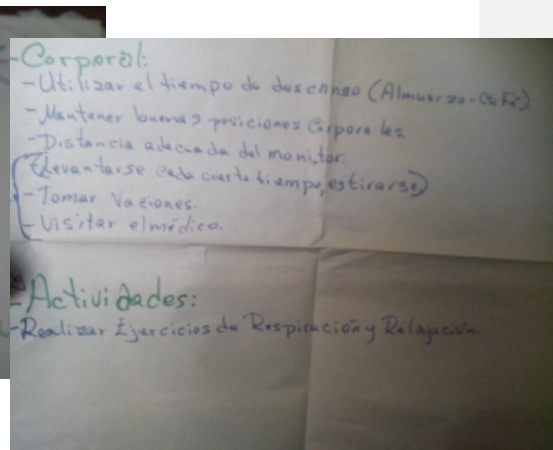 -Corporal:
-Utilizar el tiempo de descanso (Almuerzo-Café)
-Mantener buenas posiciones Corporales
-Distancia adecuada del monitor.
(Levantarse cada cierto tiempo, estirarse)
-Tomar Vaciones.
-Visitar el médico.
-Actividades:
-Realizar Ejercicios de Respiración y Relajación.